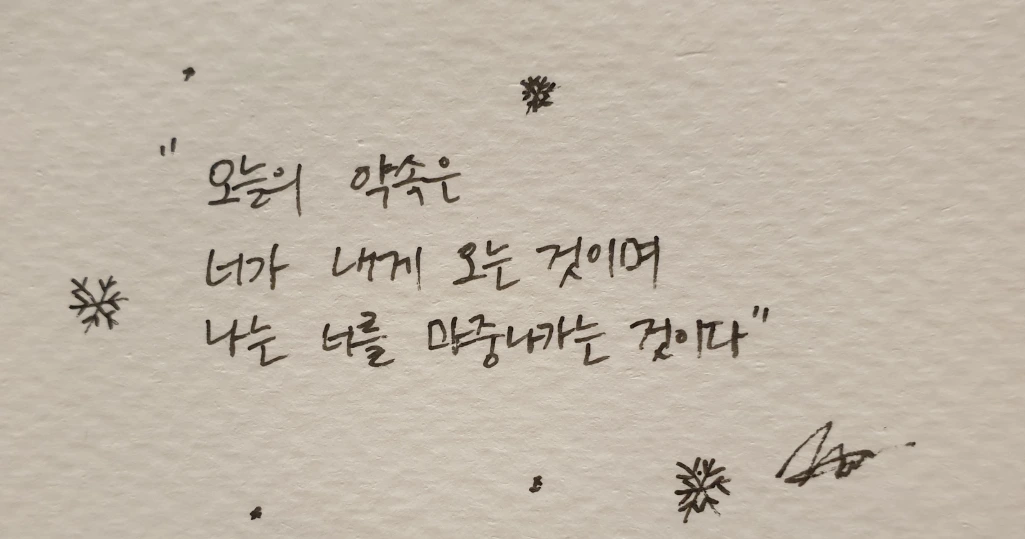 "오늘의 약속은
너가 내게 오는 것이며
나는 너를 마중나가는 것이다"